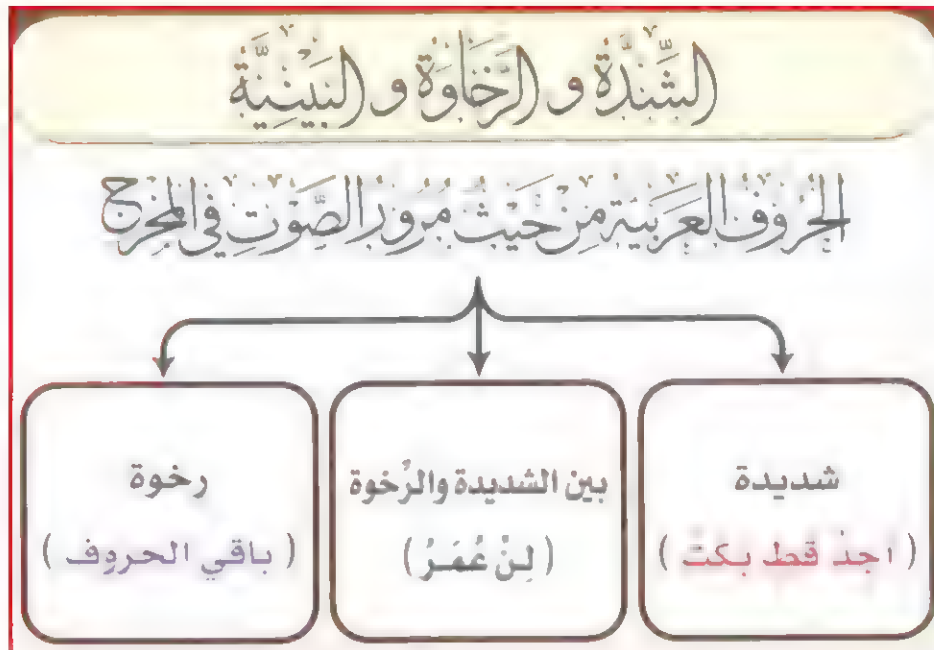 الشِّدَّة و الرَّخَاوَة و البَيْنِيَّة
الحُرُوف العَرَبِيَّة مِنْ حَيْثُ مُرُورُ الصَّوْتِ فِي المَخْرَج
شديدة
( اجد قط بكت )
بين الشديدة والرِّخوة
( لِنْ عُمَرُ )
رخوة
( باقي الحروف )